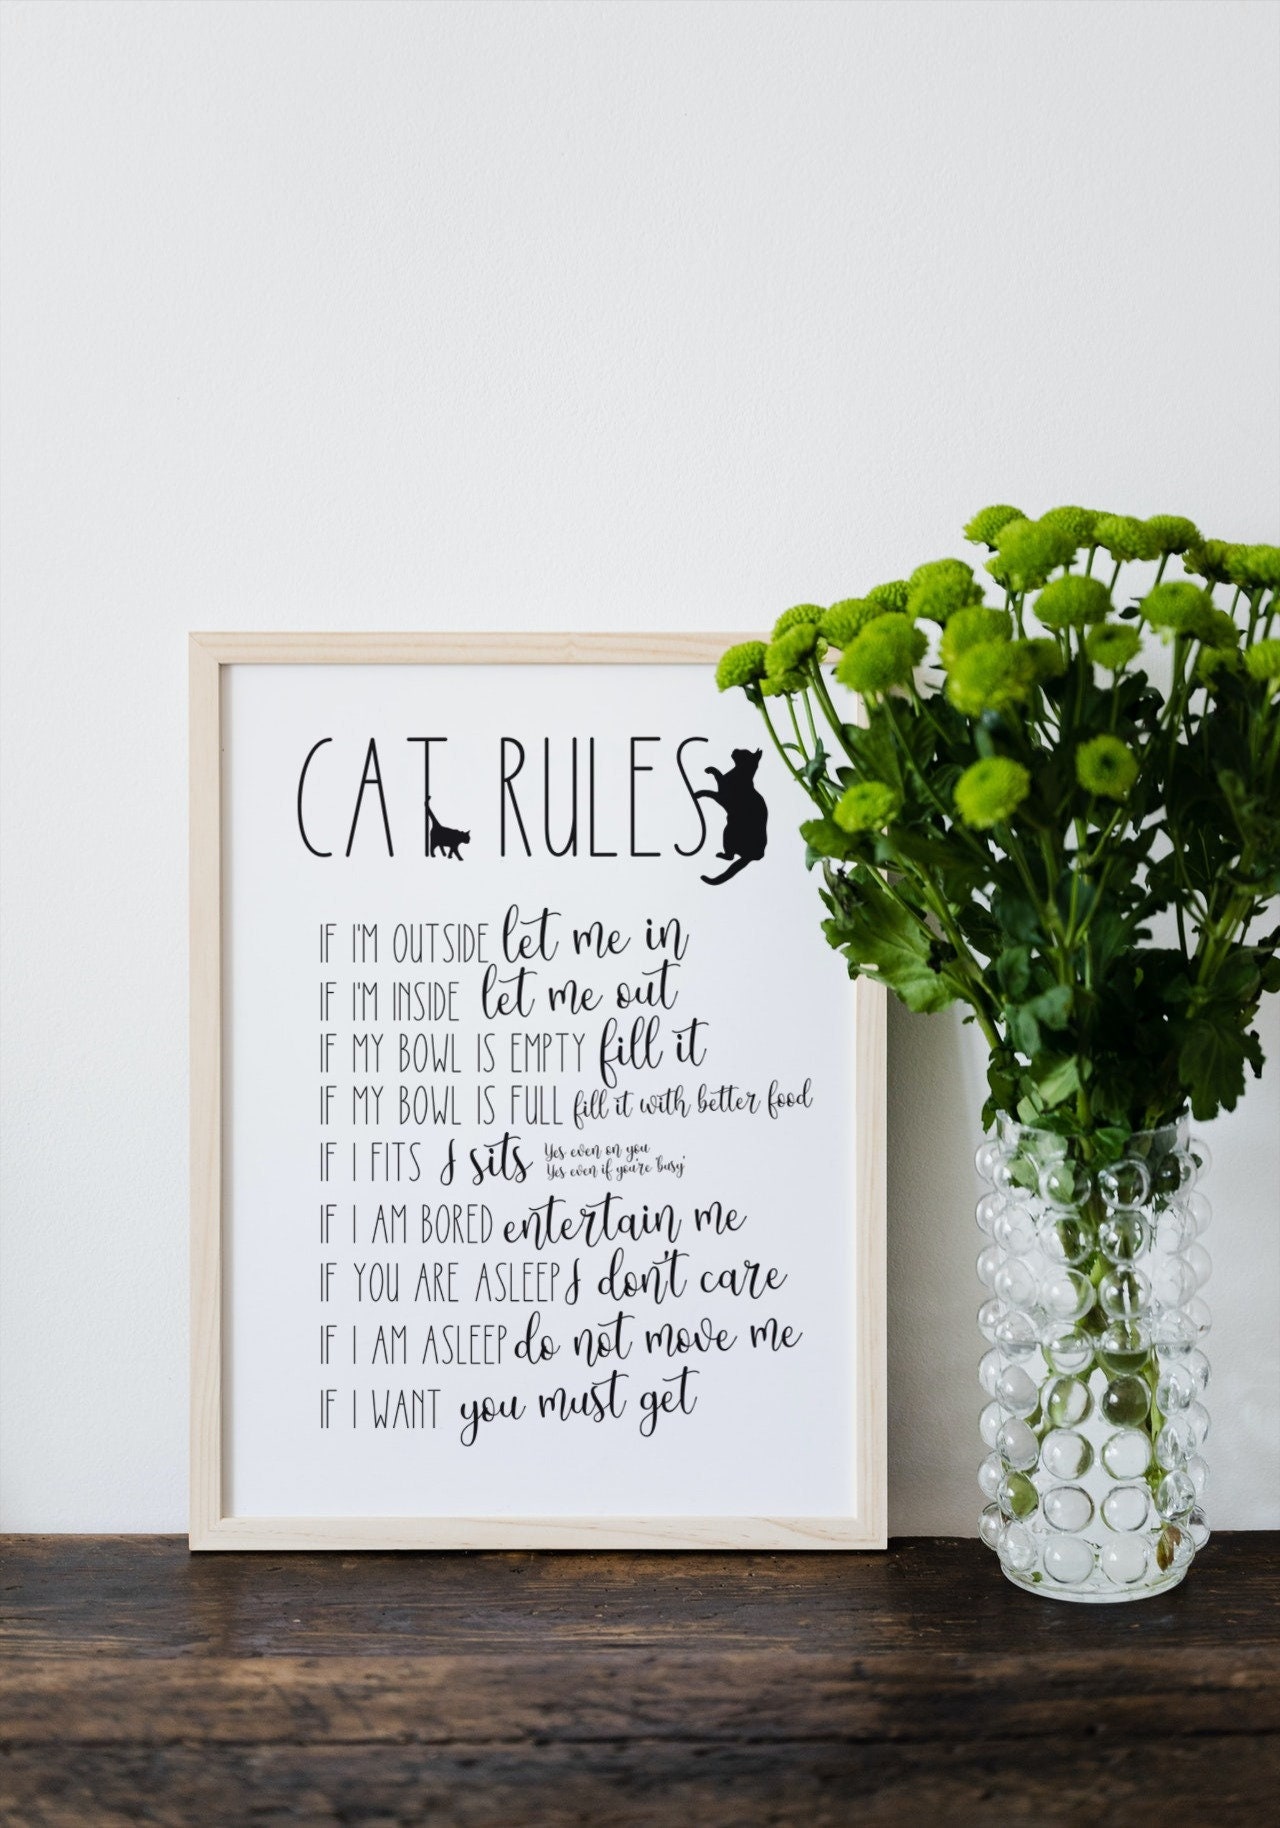 CAT RULES
IF I'M OUTSIDE let me in
IF I'M INSIDE let me out
IF MY BOWL IS EMPTY fill it
IF MY BOWL IS FULL fill it with better food
IF I FITS I sits Yes even on you
Yes even if you're 'busy'
IF I AM BORED entertain me
IF YOU ARE ASLEEP I don't care
IF I AM ASLEEP do not move me
IF I WANT you must get